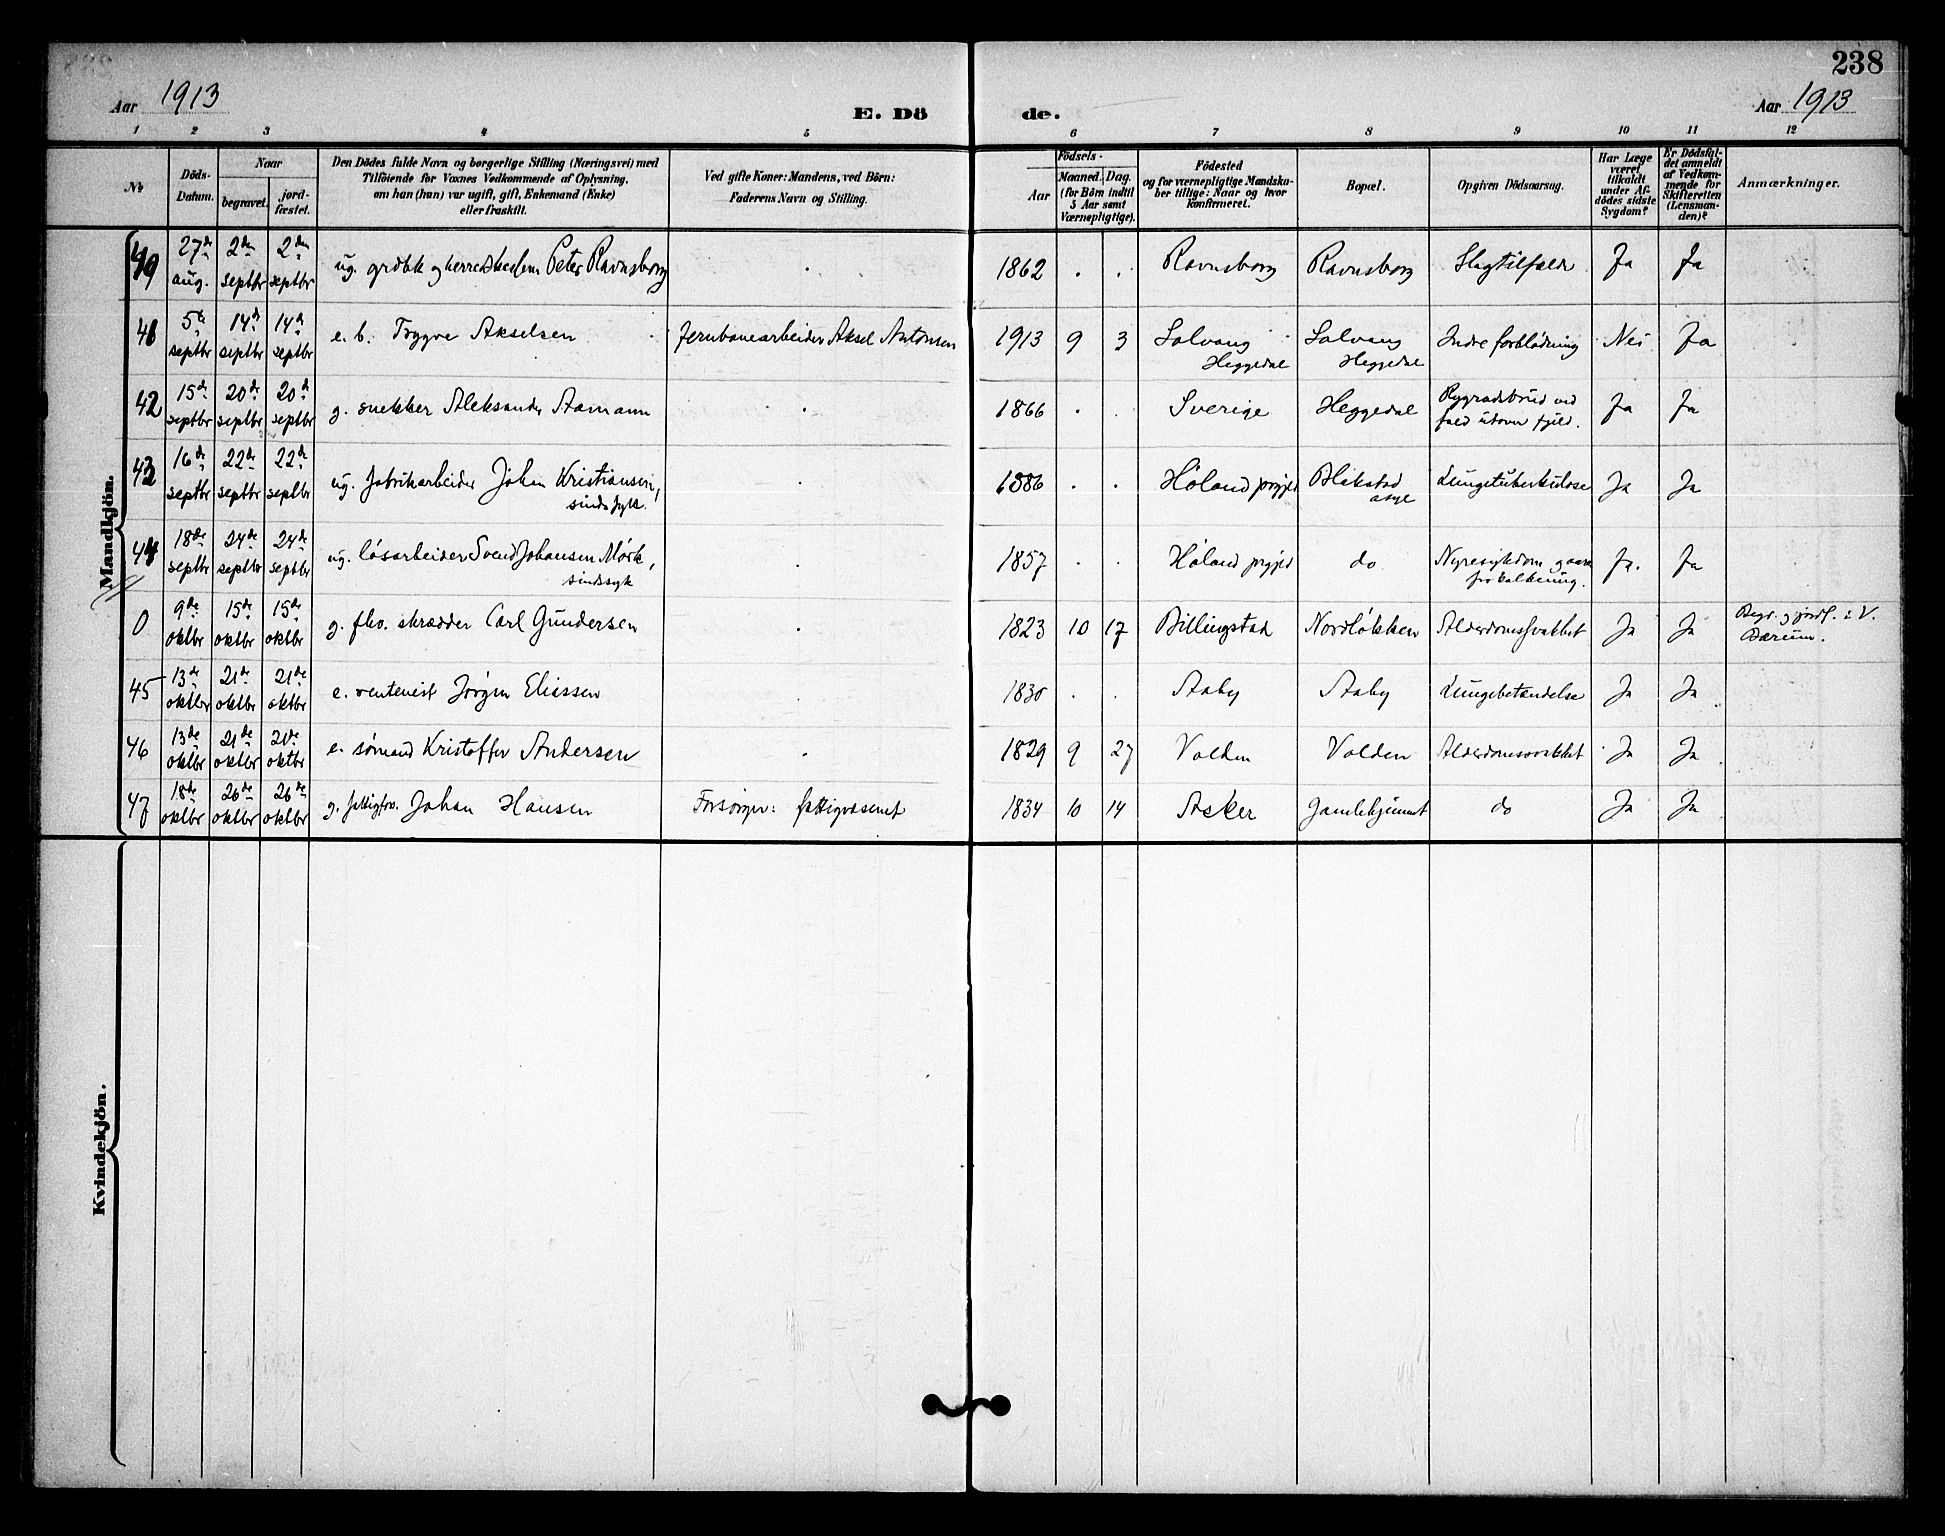 238
Aar 1913
E. Dö
de.
Aar 1913
1 2 3 4 5 6 7 8 9 10 11 12
No
Döds-
Datum.
Naar
begravet.
jord-
fæstet.
Den Dödes fulde Navn og borgerlige Stilling (Næringsvei) med
Tilföiende for Voxnes Vedkommende af Oplysning,
om han (hun) var ugift, gift, Enkemand (Enke)
eller fraskilt.
Ved gifte Koner: Mandens, ved Börn:
Faderens Navn og Stilling.
Födsels-
Aar
Maaned. Dag.
(for Börn indtil
5 Aar samt
Værnepligtige).
Födested
og for værnepligtige Mandska-
ber tillige: Naar og hvor
konfirmeret.
Bopæl.
Opgiven Dödsaarsag.
Har Læge
været
tilkaldt
under Af-
dödes sidste
Sygdom?
Er Dödsfal-
det anmeldt
af Vedkom-
mende for
Skifteretten
(Lensman-
den)?
Anmærkninger.
Mandkjön.
27de aug. 2den septbr 2den septbr ug. Peter Ravnsborg . 1862 . . Ravnsborg Ravnsborg Slagtilfælde Ja Ja
41 5te septbr 14de septbr 14de septbr e. b. Trygve Akselsen Jernbanearbeider Aksel Antonsen 1913 9 3 Solvang Heggedal Solvang Heggedal Indre forblødning Nei Ja
42 15de septbr 20de septbr 20de septbr g. snekker Aleksander Aamann . 1866 . . Sverige Heggedal Rygradsbrud ved fald utover fjeld. Ja Ja
43 16de septbr 22de septbr 22de septbr ug. fabrikarbeider Johan Kristiansen, sindssyk. . 1886 . . Høland prgjld Blakstad asyl Lungetuberkulose Ja Ja
44 18de septbr 24de septbr 24de septbr ug. løsarbeider Svend Johansen Mørk, sindssyk . 1857 . . Høland prgjld do Nyresykdom og aareforkalkning. Ja. Ja
0 9de oktbr 15de oktbr 15de oktbr g. fhv. skrædder Carl Gundersen . 1823 10 17 Billingstad Nordløkken Alderdomssvakhet Ja Ja Begr. og jordf. i V. Bærum.
45 13de oktbr 21de oktbr 21de oktbr e. rentenist Jørgen Eliassen . 1830 . . Aaby Aaby Lungebetændelse Ja Ja
46 13de oktbr 21de oktbr 21de oktbr e. sømand Kristoffer Andersen . 1829 9 27 Volden Volden Alderdomssvakhet Ja Ja
47 18de oktbr 26de oktbr 26de oktbr g. fattigfor. Johan Hansen Forsørger: fattigvæsenet 1834 10 14 Asker Gamlehjemmet do Ja Ja
Kvindekjön.